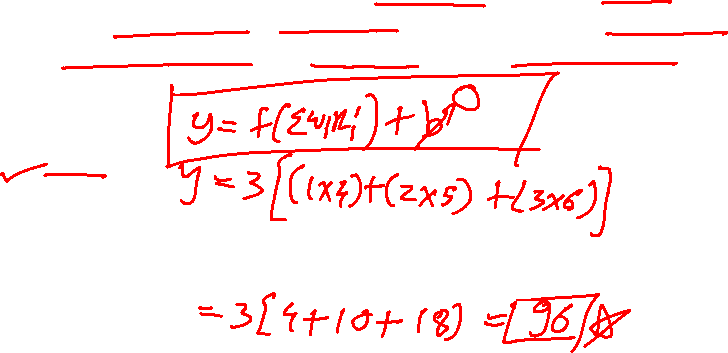 y = f(Σwᵢxᵢ) + b↗0
y = 3[(1×4)+(2×5)+(3×6)]
= 3[4+10+18) = 96